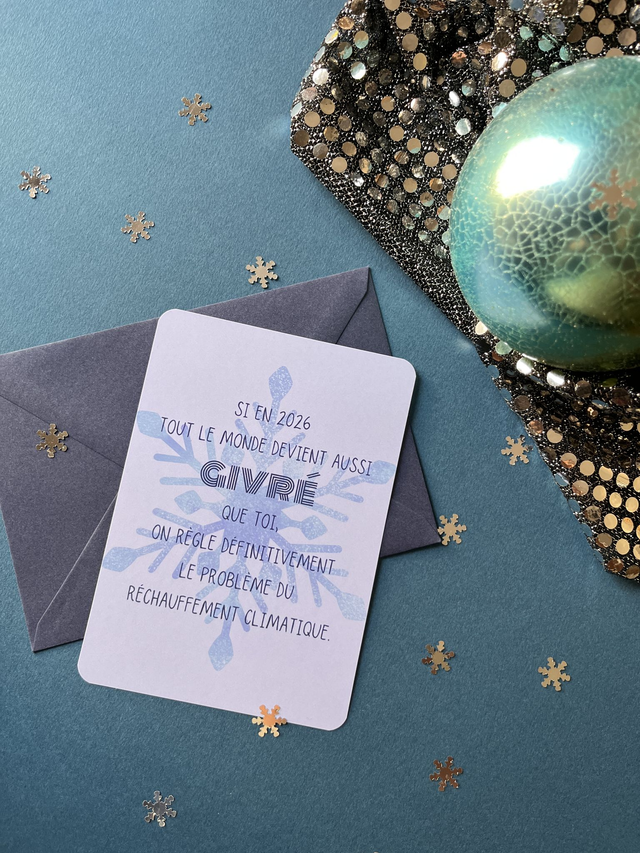 SI EN 2026
TOUT LE MONDE DEVIENT AUSSI
GIVRÉ
QUE TOI,
ON RÈGLE DÉFINITIVEMENT
LE PROBLÈME DU
RÉCHAUFFEMENT CLIMATIQUE.